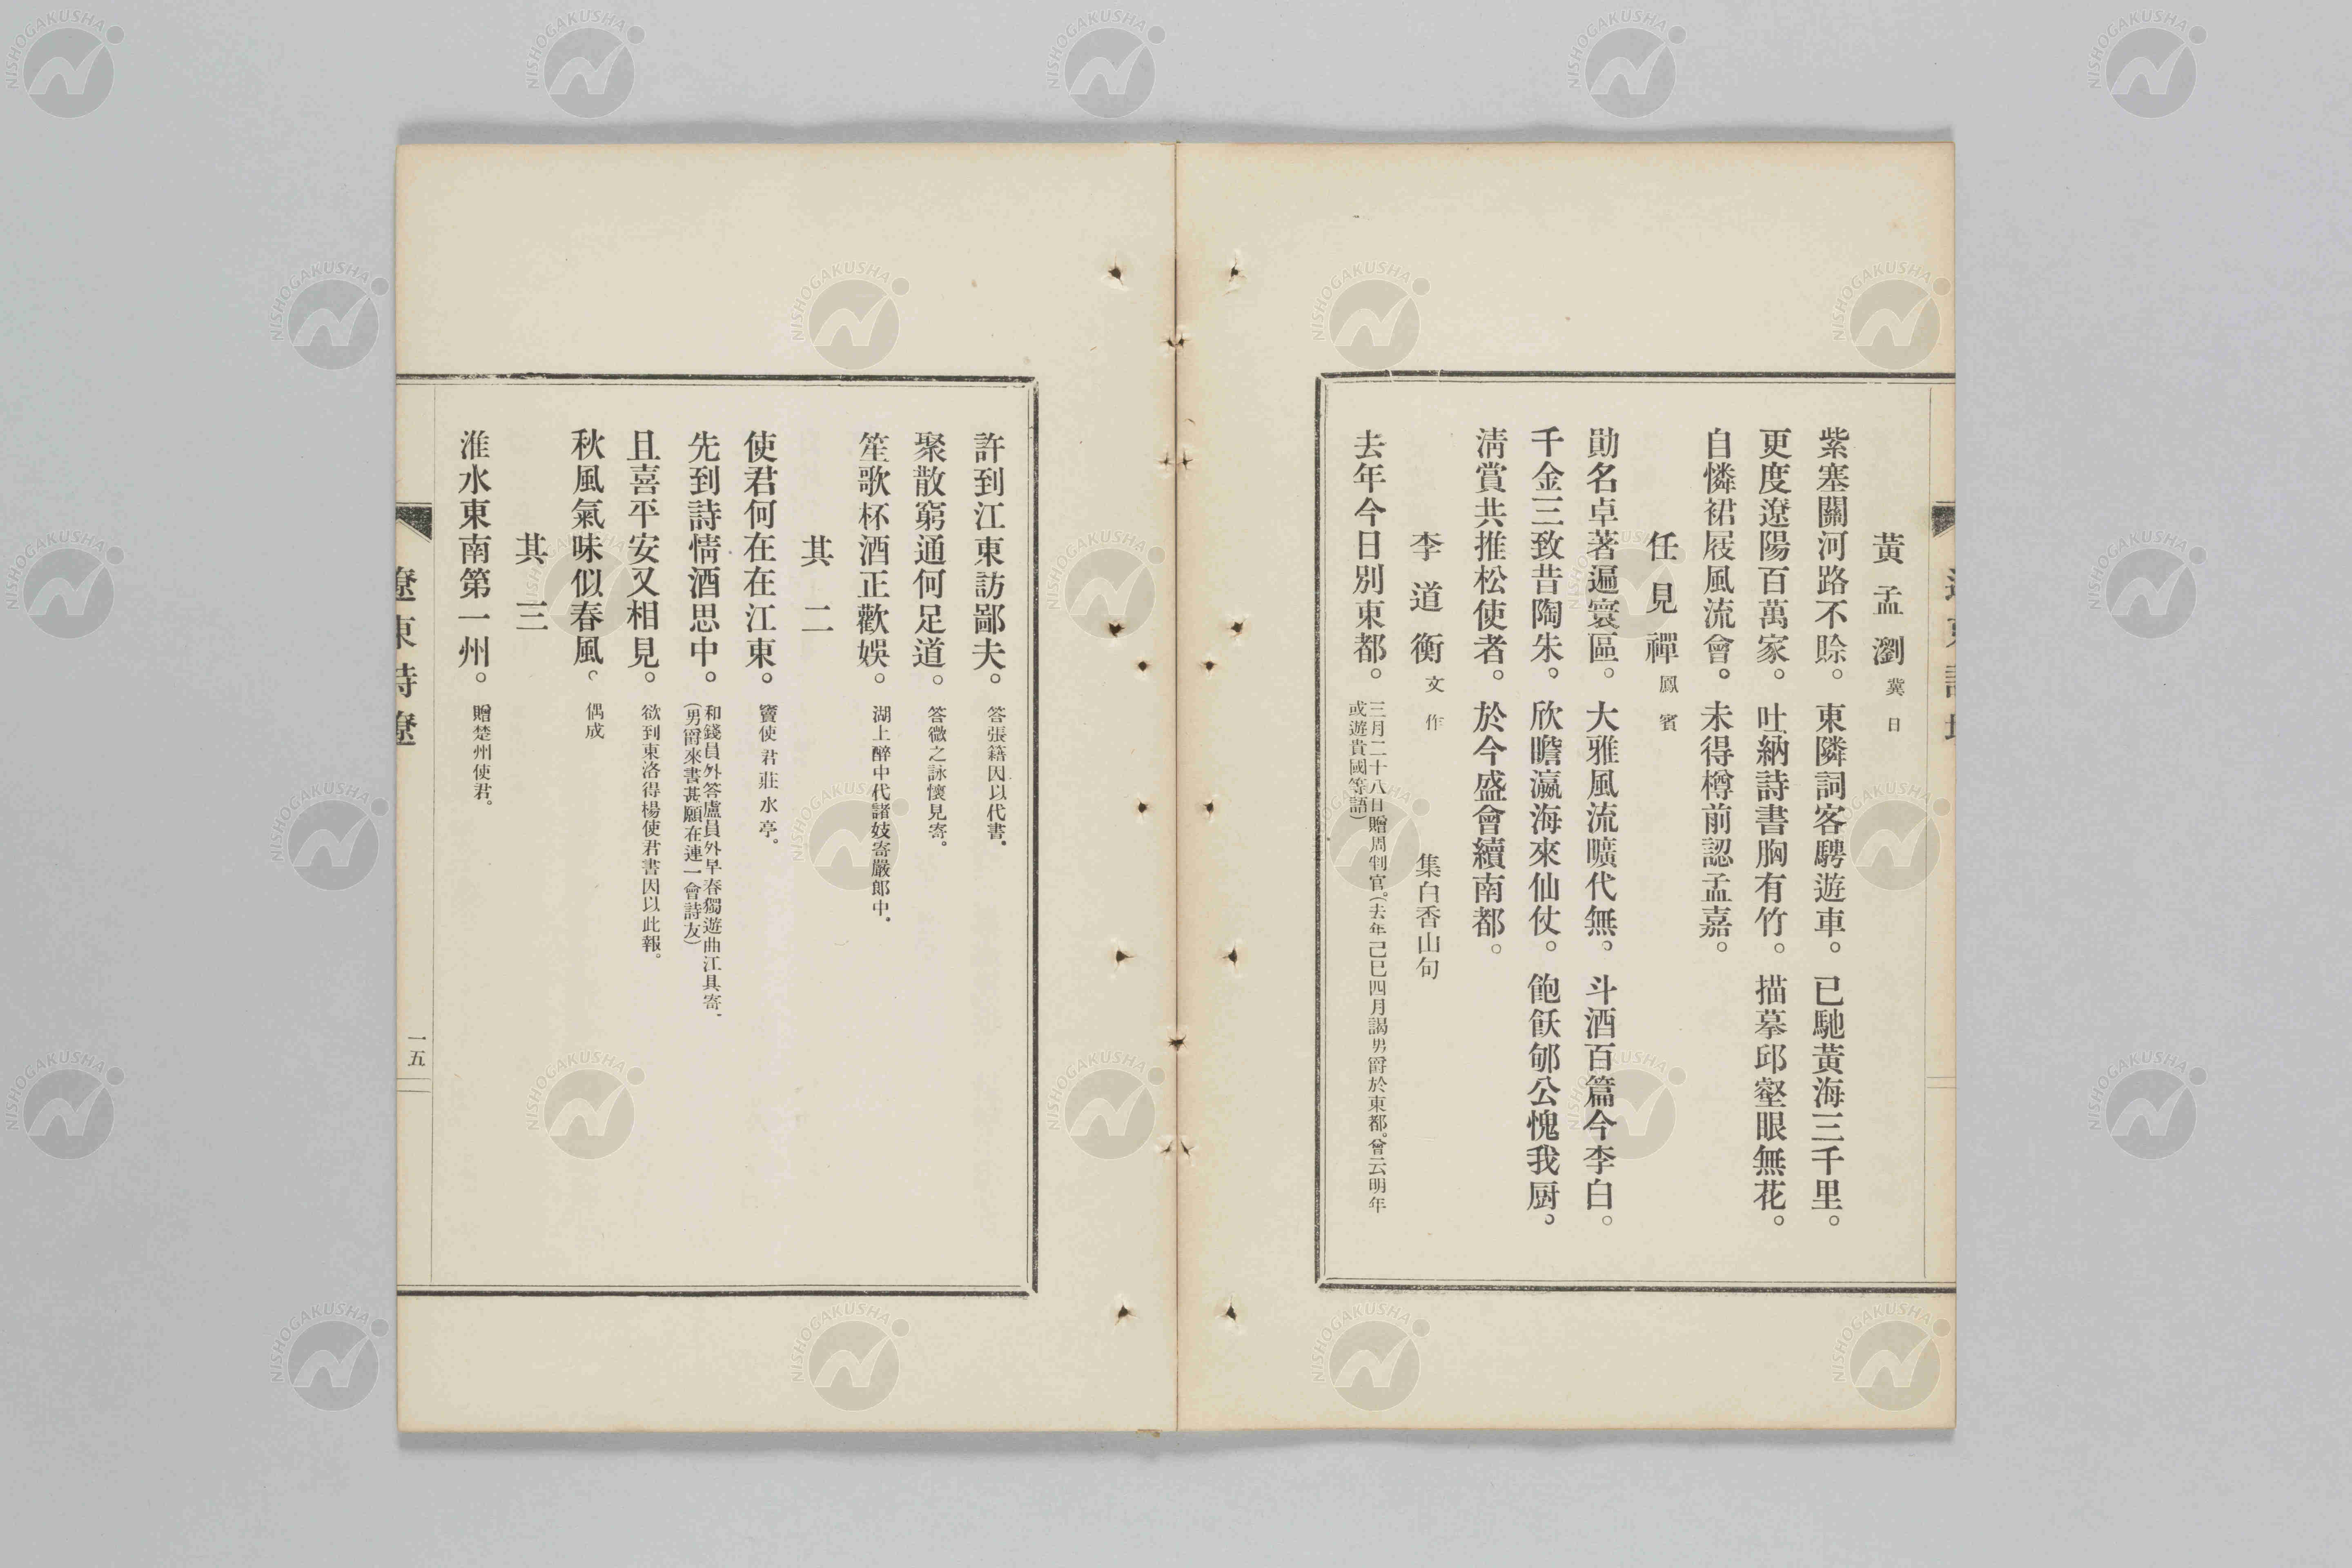 黃孟瀏 冀日
紫塞關河路不賒。東隣詞客騁遊車。已馳黃海三千里。
更度遼陽百萬家。吐納詩書胸有竹。描摹邱壑眼無花。
自憐裙屐風流會。未得樽前認孟嘉。
任見禪 鳳賓
勛名卓著遍寰區。大雅風流曠代無。斗酒百篇今李白。
千金三致昔陶朱。欣瞻瀛海來仙仗。飽飫郇公愧我厨。
淸賞共推松使者。於今盛會續南都。
李道衡 文作 集白香山句
去年今日別東都。三月二十八日贈周判官。(去年己巳四月謁男爵於東都。曾云明年
或遊貴國等語)
許到江東訪鄙夫。答張籍因以代書。
聚散窮通何足道。答微之詠懷見寄。
笙歌杯酒正歡娛。湖上醉中代諸妓寄嚴郎中。
其二
使君何在在江東。竇使君莊水亭。
先到詩情酒思中。和錢員外答盧員外早春獨遊曲江具寄、
(男爵來書甚願在連一會詩友)
且喜平安又相見。欲到東洛得楊使君書因以此報。
秋風氣味似春風。偶成
其三
淮水東南第一州。贈楚州使君。
一五
NISHOGAKUSHA